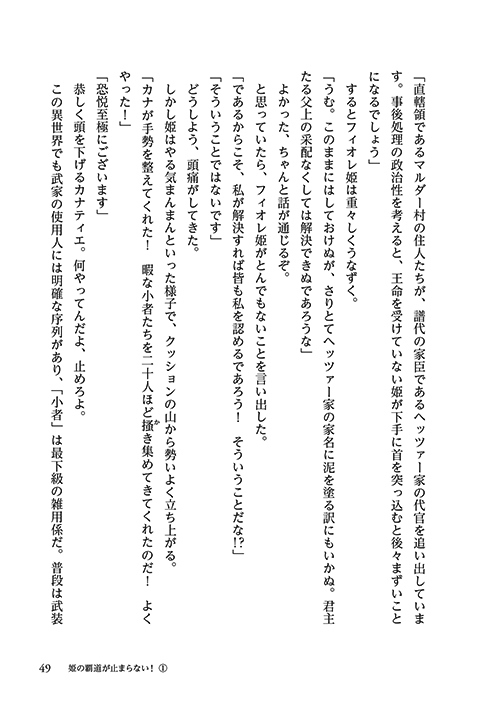 「直轄領であるマルダー村の住人たちが、譜代の家臣であるヘッツァー家の代官を追い出していま
す。事後処理の政治性を考えると、王命を受けていない姫が下手に首を突っ込むと後々まずいこと
になるでしょう」
するとフィオレ姫は重々しくうなずく。
「うむ。このままにはしておけぬが、さりとてヘッツァー家の家名に泥を塗る訳にもいかぬ。君主
たる父上の采配なくしては解決できぬであろうな」
よかった、ちゃんと話が通じるぞ。
と思っていたら、フィオレ姫がとんでもないことを言い出した。
「であるからこそ、私が解決すれば皆も私を認めるであろう！　そういうことだな!?」
「そういうことではないです」
どうしよう、頭痛がしてきた。
しかし姫はやる気まんまんといった様子で、クッションの山から勢いよく立ち上がる。
「カナが手勢を整えてくれた！　暇な小者たちを二十人ほど掻き集めてきてくれたのだ！　よく
か
やった！」
「恐悦至極にございます」
恭しく頭を下げるカナティエ。何やってんだよ、止めろよ。
この異世界でも武家の使用人には明確な序列があり、「小者」は最下級の雑用係だ。普段は武装
49　姫の覇道が止まらない！ ①